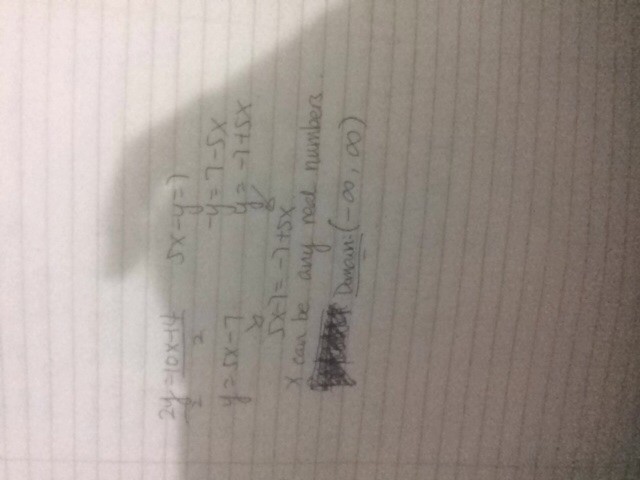 2y = 10x-14 5x-y=7
2 2 -y = 7-5x
y = 5x-7 y = -7+5x
5x-7 = -7+5x
x can be any real numbers.
Domain: (-∞, ∞)